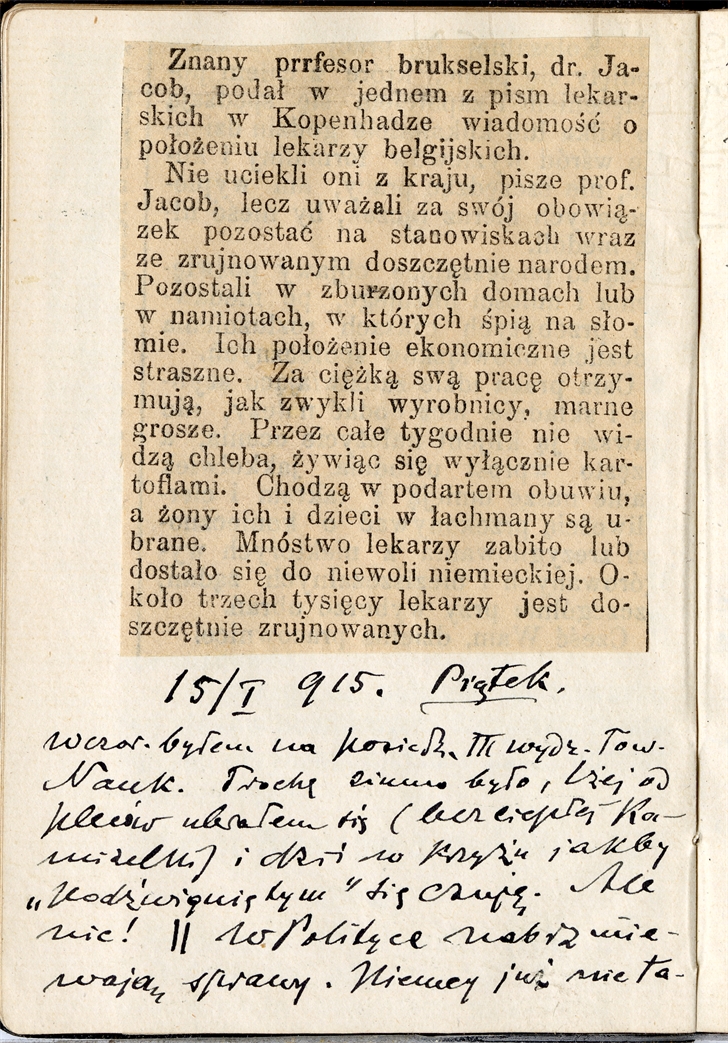 Znany prrfesor brukselski, dr. Ja-
cob, podał w jednem z pism lekar-
skich w Kopenhadze wiadomość o
położeniu lekarzy belgijskich.
Nie uciekli oni z kraju, pisze prof.
Jacob, lecz uważali za swój obowią-
zek pozostać na stanowiskach wraz
ze zrujnowanym doszczętnie narodem.
Pozostali w zburzonych domach lub
w namiotach, w których śpią na sło-
mie. Ich położenie ekonomiczne jest
straszne. Za ciężką swą pracę otrzy-
mują, jak zwykli wyrobnicy, marne
grosze. Przez całe tygodnie nie wi-
dzą chleba, żywiąc się wyłącznie kar-
toflami. Chodzą w podartem obuwiu,
a żony ich i dzieci w łachmany są u-
brane. Mnóstwo lekarzy zabito lub
dostało się do niewoli niemieckiej. O-
koło trzech tysięcy lekarzy jest do-
szczętnie zrujnowanych.
15/I 915. Piątek.
wczor. byłem na posiedz. III wydz. Tow.
Nauk. Trochę zimno było, lżej od
pleców ubrałem się (bez ciepłej Ka-
mizelki) i dziś w krzyżu jakby
„podźwigniętym" się czuję. Ale
nic! || w Polityce nabrzmie-
wają sprawy. Niemcy już nie ta-